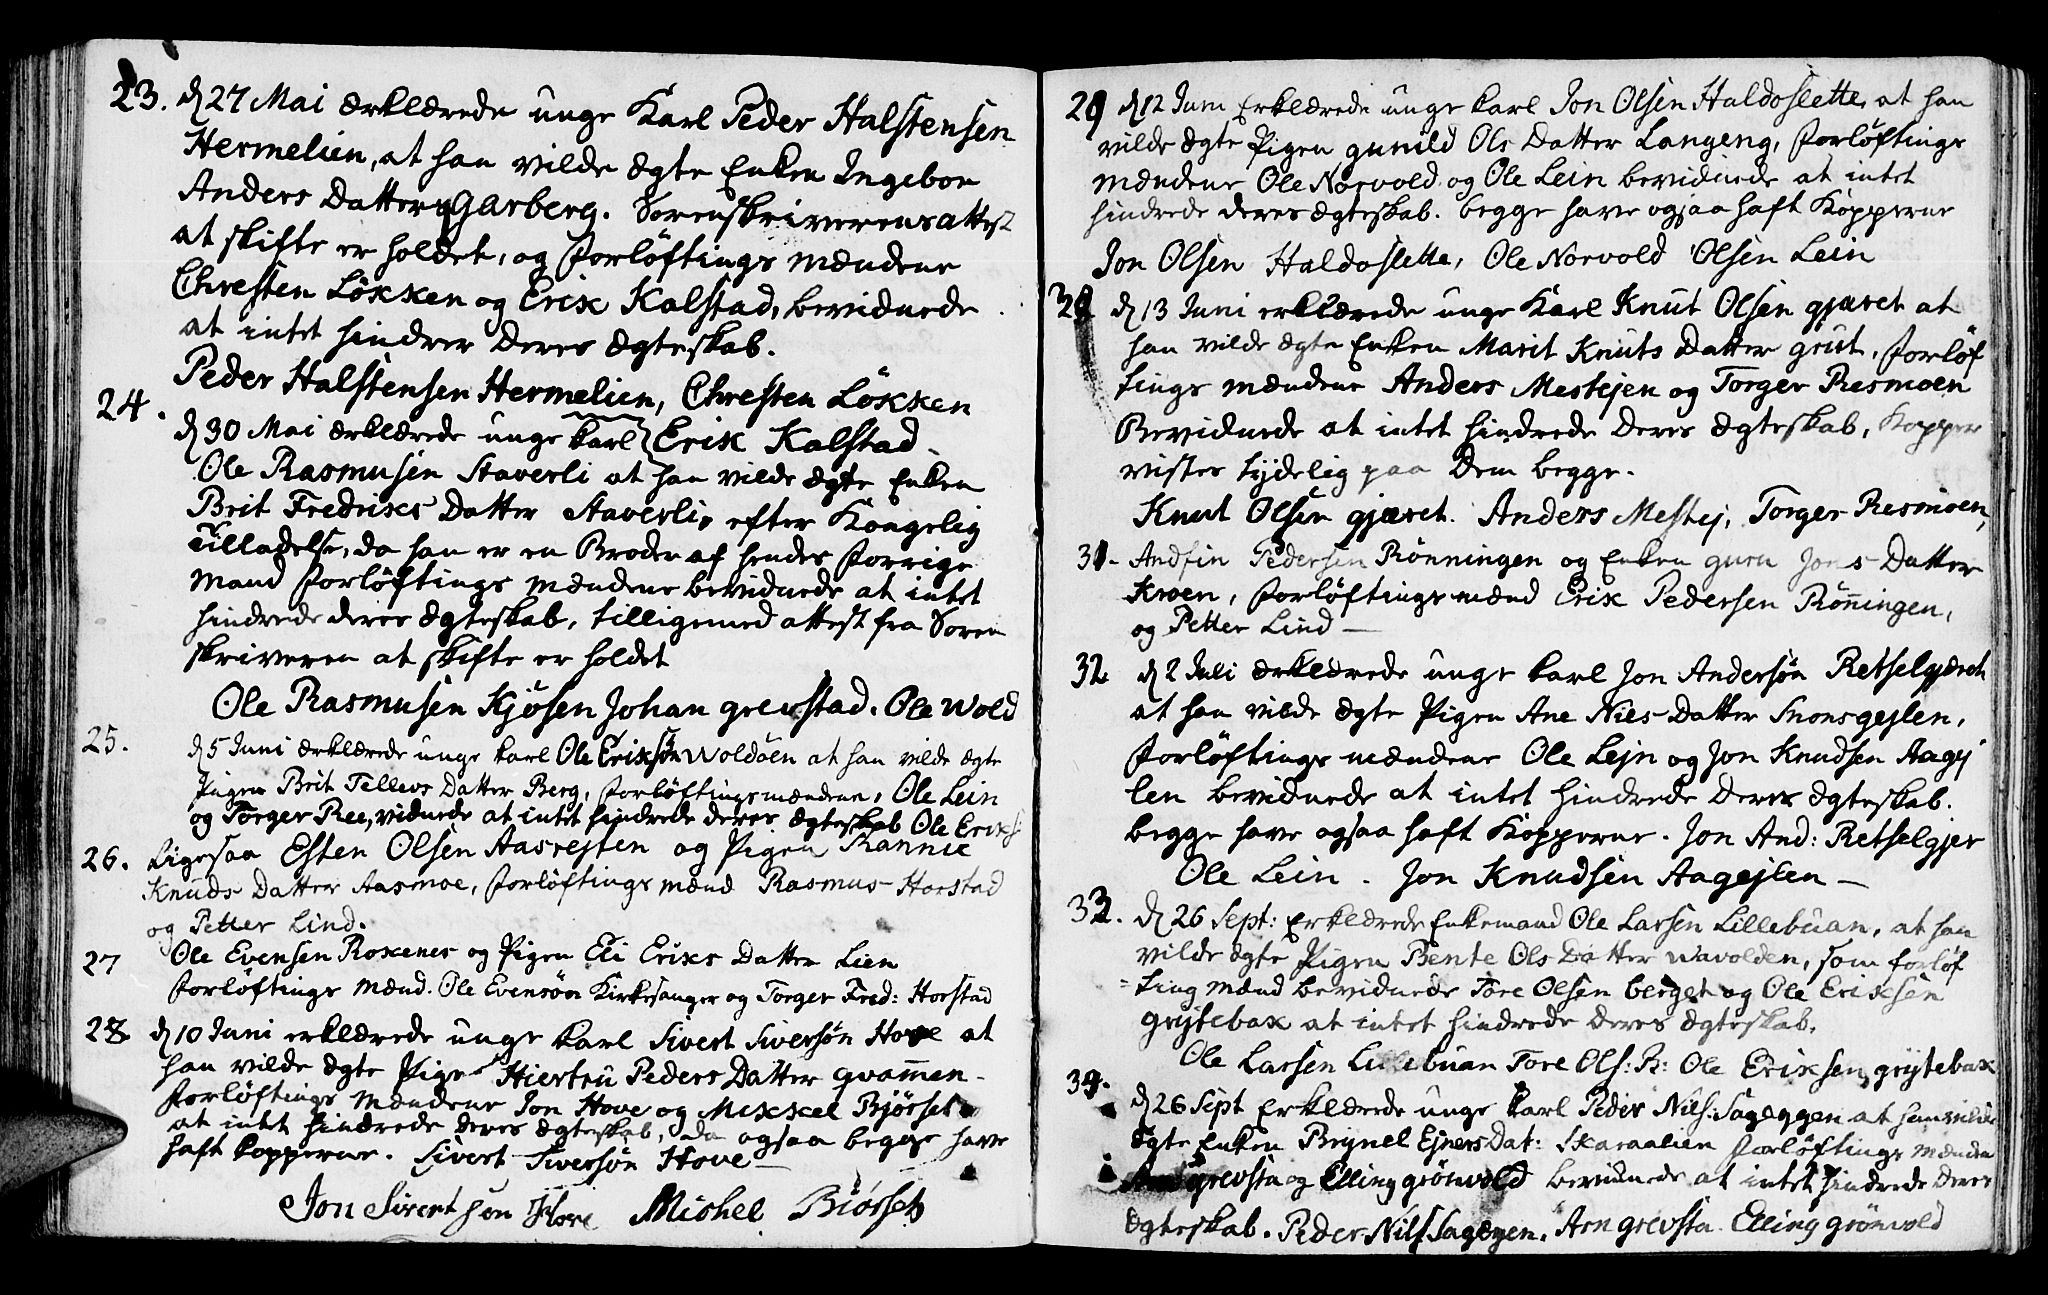 23. d 27 Mai erklærede unge Karl Peder Halstensen
Hermelien, at han vilde ægte Enken Ingebor
Anders Datter Garberg. Sorenskriverens attest
at skifte er holdet, og Forløftings mændene
Chresten Løkken og Erik Kalstad, bevidnede
at intet hindrer deres Ægteskab.
Peder Halstensen Hermelien, Chresten Løkken
Erik Kalstad
24. d 30 Mai erklærede unge karl
Ole Rasmusen Staverli at han vilde ægte Enken
Brit Fredriks Datter Staverli, efter Kongelig
Tilladelse, da han er en Broder af hendes forrige
Mand Forløftings mændene bevidnede at intet
hindrede deres Ægteskab, tilligemed attest fra Soren
skriveren at skifte er holdet
Ole Rasmusen Kjøsen Johan grevstad. Ole Wold
25. d 5 Juni erklærede unge karl Ole Eriksøn Woldøen at han vilde ægte
Pigen Brit Tellevs Datter Berg, Forløftingsmændene, Ole Lein
og Torger Ree, vidnede at intet hindrede deres Ægteskab Ole Eriks
26. Ligesaa Esten Olsen Aasrejten og Pigen Rannie
Knuds Datter Aasmoe, Forløftings mænd Rasmus Horstad
og Petter Lind.
27 Ole Evensen Roxenes og Pigen Eli Eriks Datter Lien
Forløftings mænd. Ole Evensøn Kirkesanger og Torger Fred: Horstad
28 d 10 Juni erklærede unge karl Sivert Siversøn Hove at
han vilde ægte Pige Hiertru Peders Datter qvammen
Forløftings mændene Jon Hove og Mikkel Bjørset
at intet hindrede deres Ægteskab, da ogsaa begge have
haft kopperne. Sivert Siversøn Hove
Jon Sivert sen Hove Michel Biørset
29 d 12 Juni Erklærede unge karl Jon Olsen Haldoslette at han
vilde ægte Pigen gunild Ols Datter Langeng, Forløftings
mændene Ole Norvold og Ole Lein bevidnede at intet
hindrede deres Ægteskab. begge have ogsaa haft Kopperne
Jon Olsen Haldoslette, Ole Norvold Olsen Lein
30 d 13 Juni erklærede unge Karl Knut Olsen gjæret at
han vilde ægte Enken Marit Knuts Datter grut, Forløf
tings mændene Anders Mestejen og Torger Resmoen
Bevidnede at intet hindrede deres Ægteskab, Kopper
vistes tydelig paa Dem begge.
Knut Olsen gjæret. Anders Mestej, Torger Resmoen,
31. Andfin Pedersen Rønningen og Enken guru Jons Datter
Kroen, Forløftings mænd Erik Pedersen Rønningen,
og Petter Lind
32 d 2 Juli erklærede unge karl Jon Andersøn Retselgjæret
at han vilde ægte Pigen Ane Niels Datter Snonsgejlen,
Forløftings mændene Ole Lejn og Jon Knudsen Aagej
len bevidnede at intet hindrede deres Ægteskab.
begge have ogsaa haft Kopperne. Jon And: Retselgjer
Ole Lein. Jon Knudsen Aagejlen
33. d 26 Sept: Erklærede Enkemand Ole Larsen Lillebuan, at han
vilde ægte Pigen Bente Ols Datter Wavolden, som forløf
ting mænd bevidnede Tore Olsen berget og Ole Eriksen
grytebak at intet hindrede deres Ægteskab.
Ole Larsen Lillebuan Tore Ols: B: Ole Eriksen grytebak
34. d 26 Sept Erklærede unge karl Peder Nils: Sageggen at han vilde
ægte Enken Brynel Ejners Dat: Skaraalien Forløftings mænden
Arn grevsta og Elling grønvold bevidnede at intet hindrede deres
Ægteskab. Peder Nils Sagegen. Arn grevsta Elling grønvold